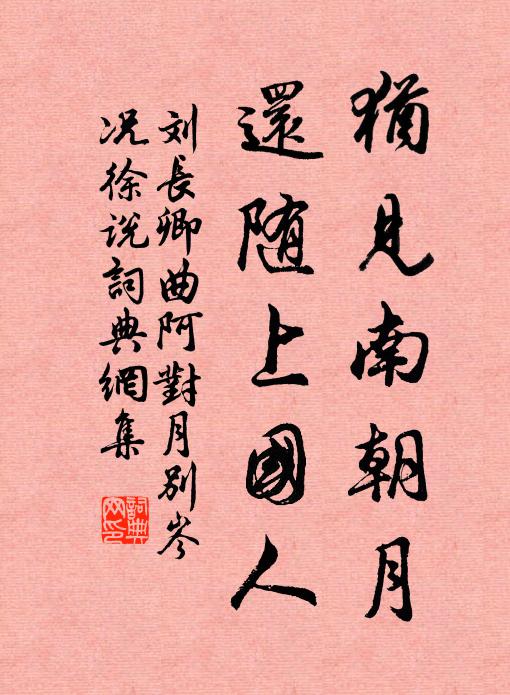 猶見南朝月
還随上國人
刘長卿曲阿對月别岑
况徐说詞典網集
詞典
网印